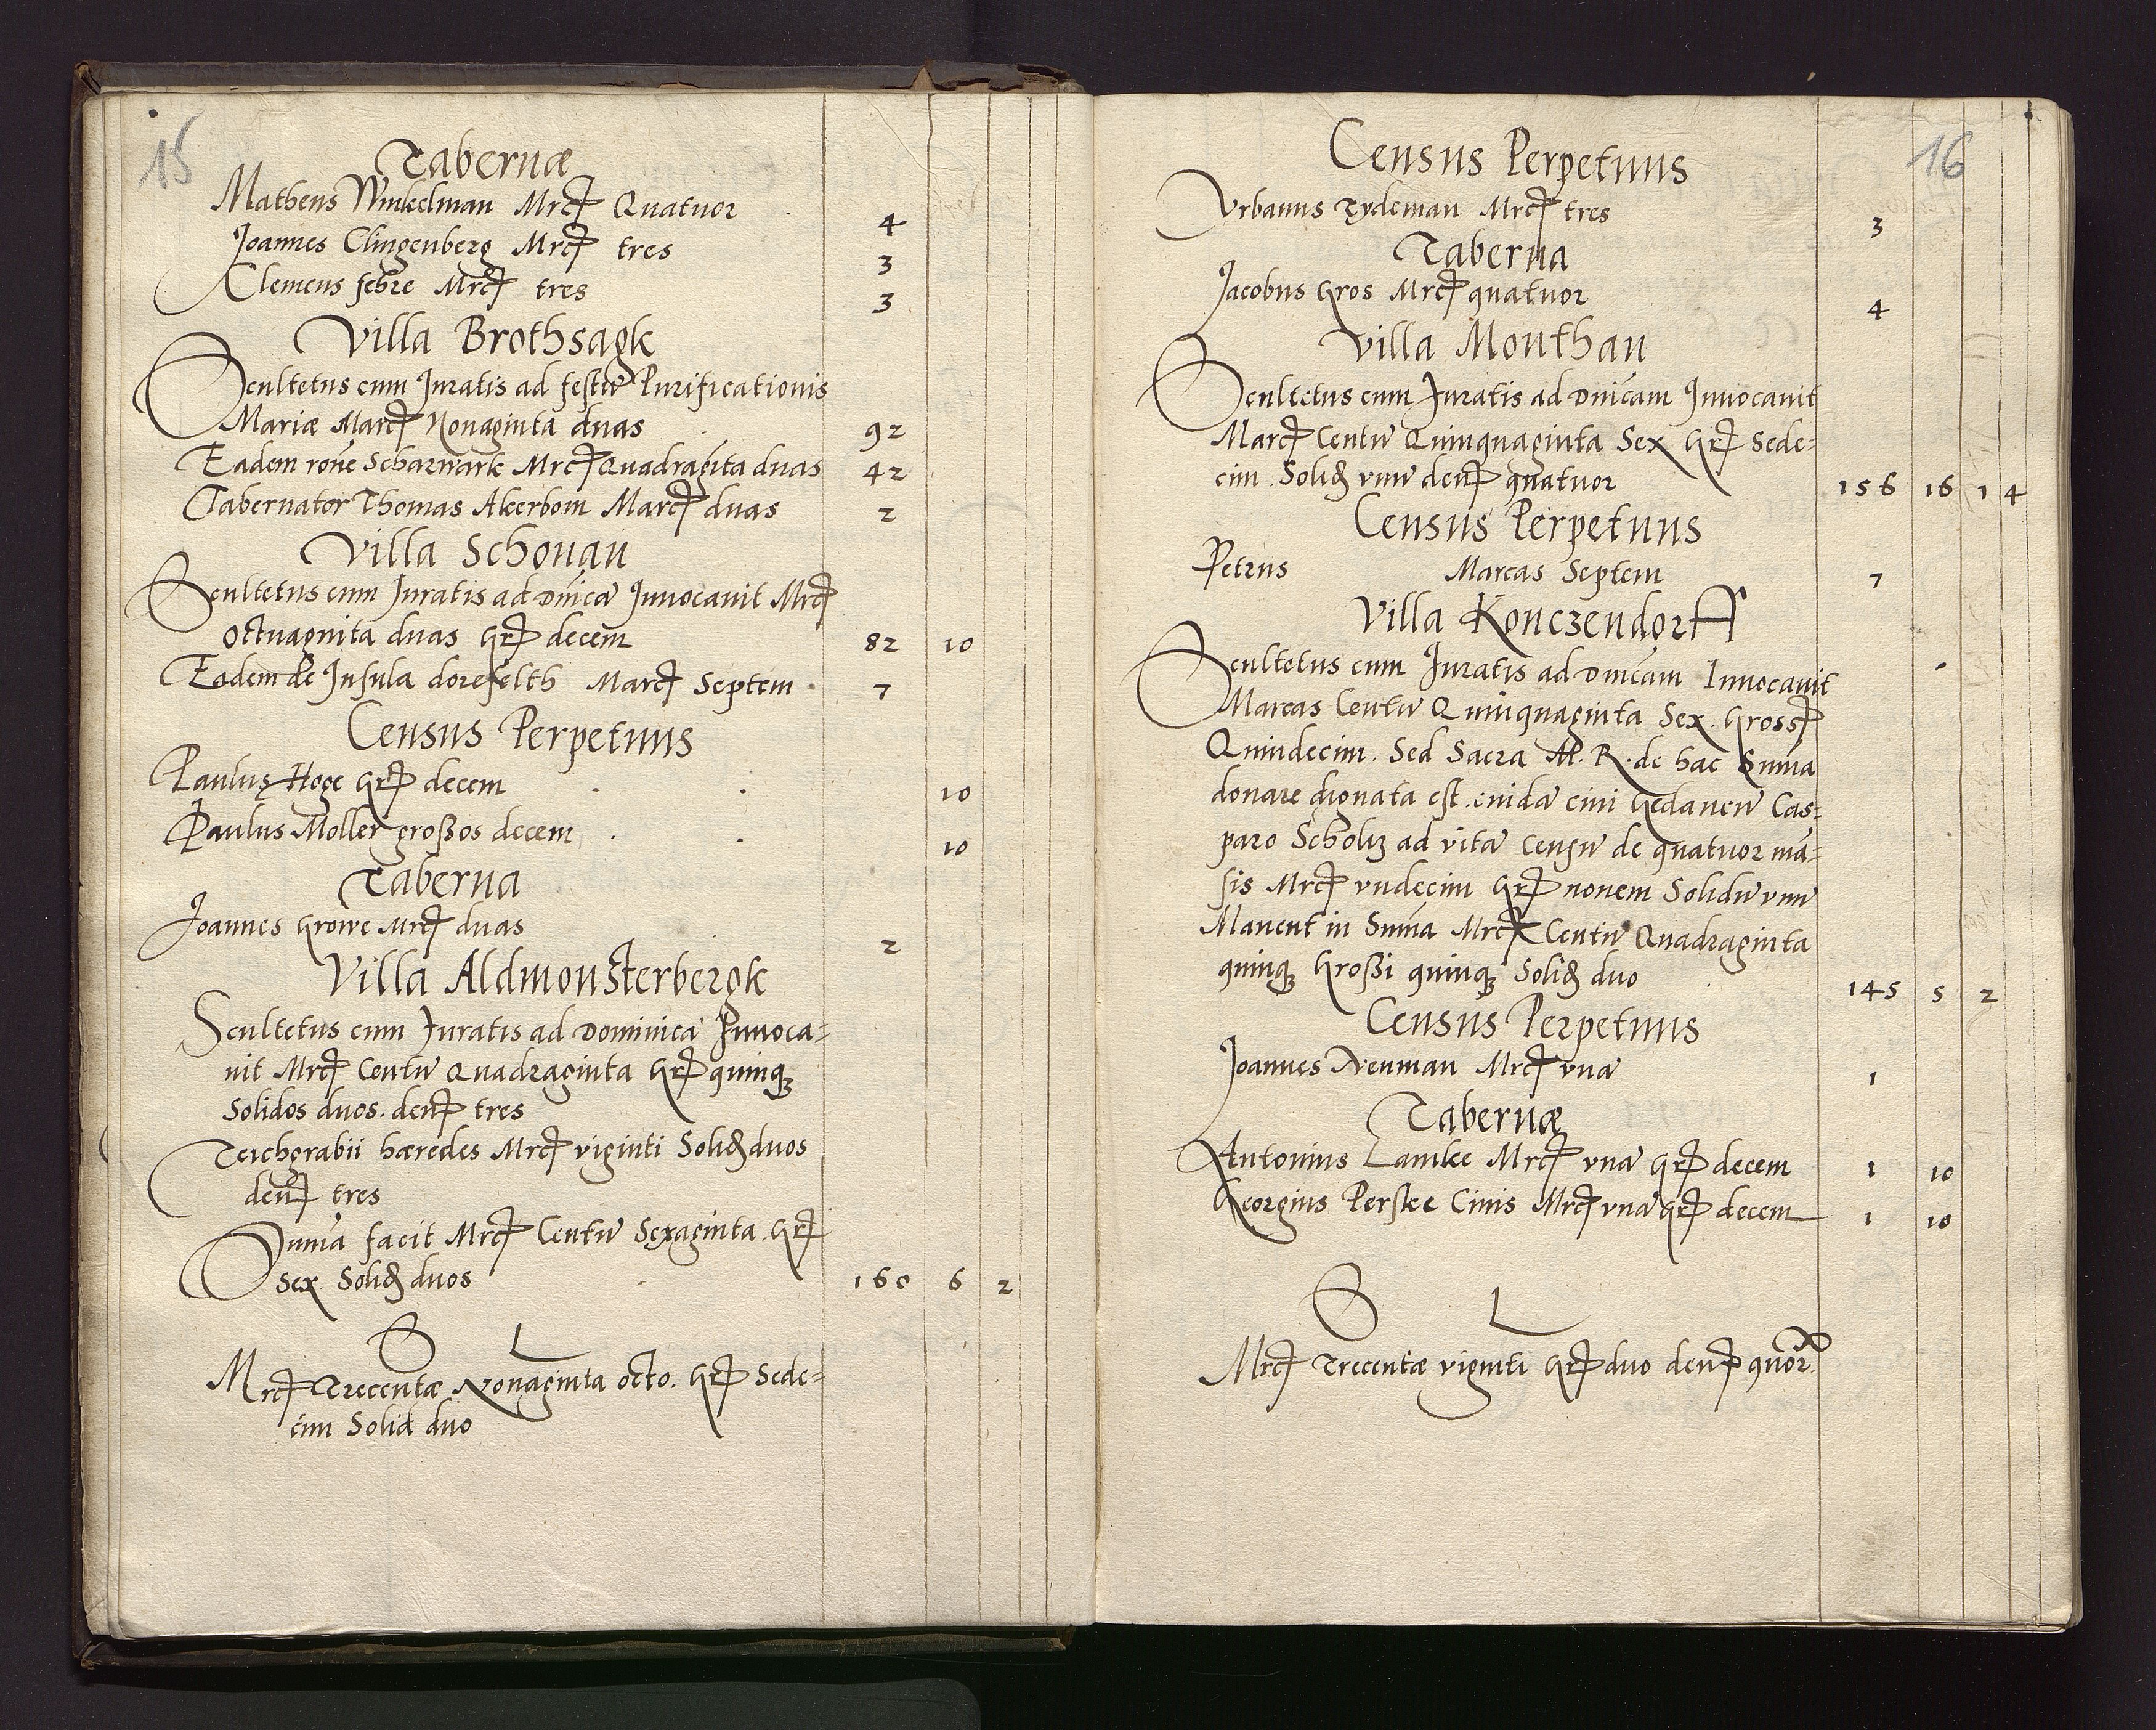 15
Tabernæ
Matheus Winkelman Mrc Quatuor 4
Joannes Clingenberg Mrc tres 3
Clemens febre Mrc tres 3
Villa Brothsagk
Scultetus cum Juratis ad festū Purificationis
Mariæ Marc Nonaginta duas 92
Eadem rōne Scharwark Mrc Quadragīta duas 42
Tabernator Thomas Akerbom Marc duas 2
Villa Schonau
Scultetus cum Juratis ad Dnica Inuocauit Mrc
Octuaginta duas Gr decem 82 10
Eadem de Insula dorefelth Marc Septem 7
Census Perpetuus
Paulus Hoge Gr decem 10
Paulus Moller großos decem 10
Taberna
Joannes Growe Mrc duas 2
Villa Aldmonsterbergk
Scultetus cum Juratis ad Dominicā Inuoca=
uit Mrc Centū Quadraginta Gr quinq
Solidos duos. den tres
Teichgrabii hæredes Mrc viginti Solid duos
den tres
Suma facit Mrc Centū Sexaginta Gr
Sex Solid duos 160 6 2
S L
Mrc Trecentæ Nonaginta octo. Gr Sede=
cim Solid duo
16
Census Perpetuus
Vrbanus Tydeman Mrc tres 3
Taberna
Jacobus Gros Mrc quatuor 4
Villa Monthau
Scultetus cum Juratis ad Dnicam Inuocauit
Marc Centū Quinquaginta Sex Gr Sede=
cim Solid vnū den quatuor 156 16 1 4
Census Perpetuus
Petrus Marcas Septem 7
Villa Konczendorff
Scultetus cum Juratis ad Dnicam Inuocauit
Marcas Centū Quinquaginta Sex. Gross
Quindecim. Sed Sacra M. R. de hac Suma
donare dignata est cuidā ciui Gedanen Cas=
paro Scholtz ad vitā Censū de quatuor mā=
sis Mrc vndecim Gr nouem Solidū vnū
Manent in Suma Mrc Centū Quadraginta
quinq Großi quinq Solid duo 145 5 2
Census Perpetuus
Joannes Neuman Mrc vnā 1
Tabernæ
Antonius Lamke Mrc vnā Gr decem 1 10
Georgius Perske Ciuis Mrc vnā Gr decem 1 10
S L
Mrc Trecentæ viginti Gr duo den quor